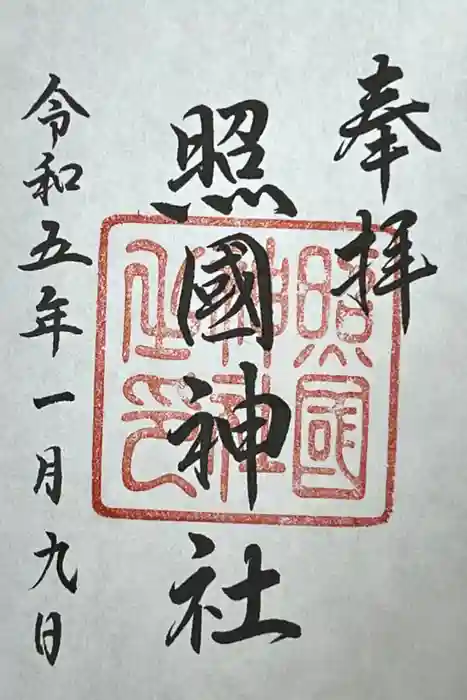 奉拝
照國神社
照國神社印
令和五年一月九日